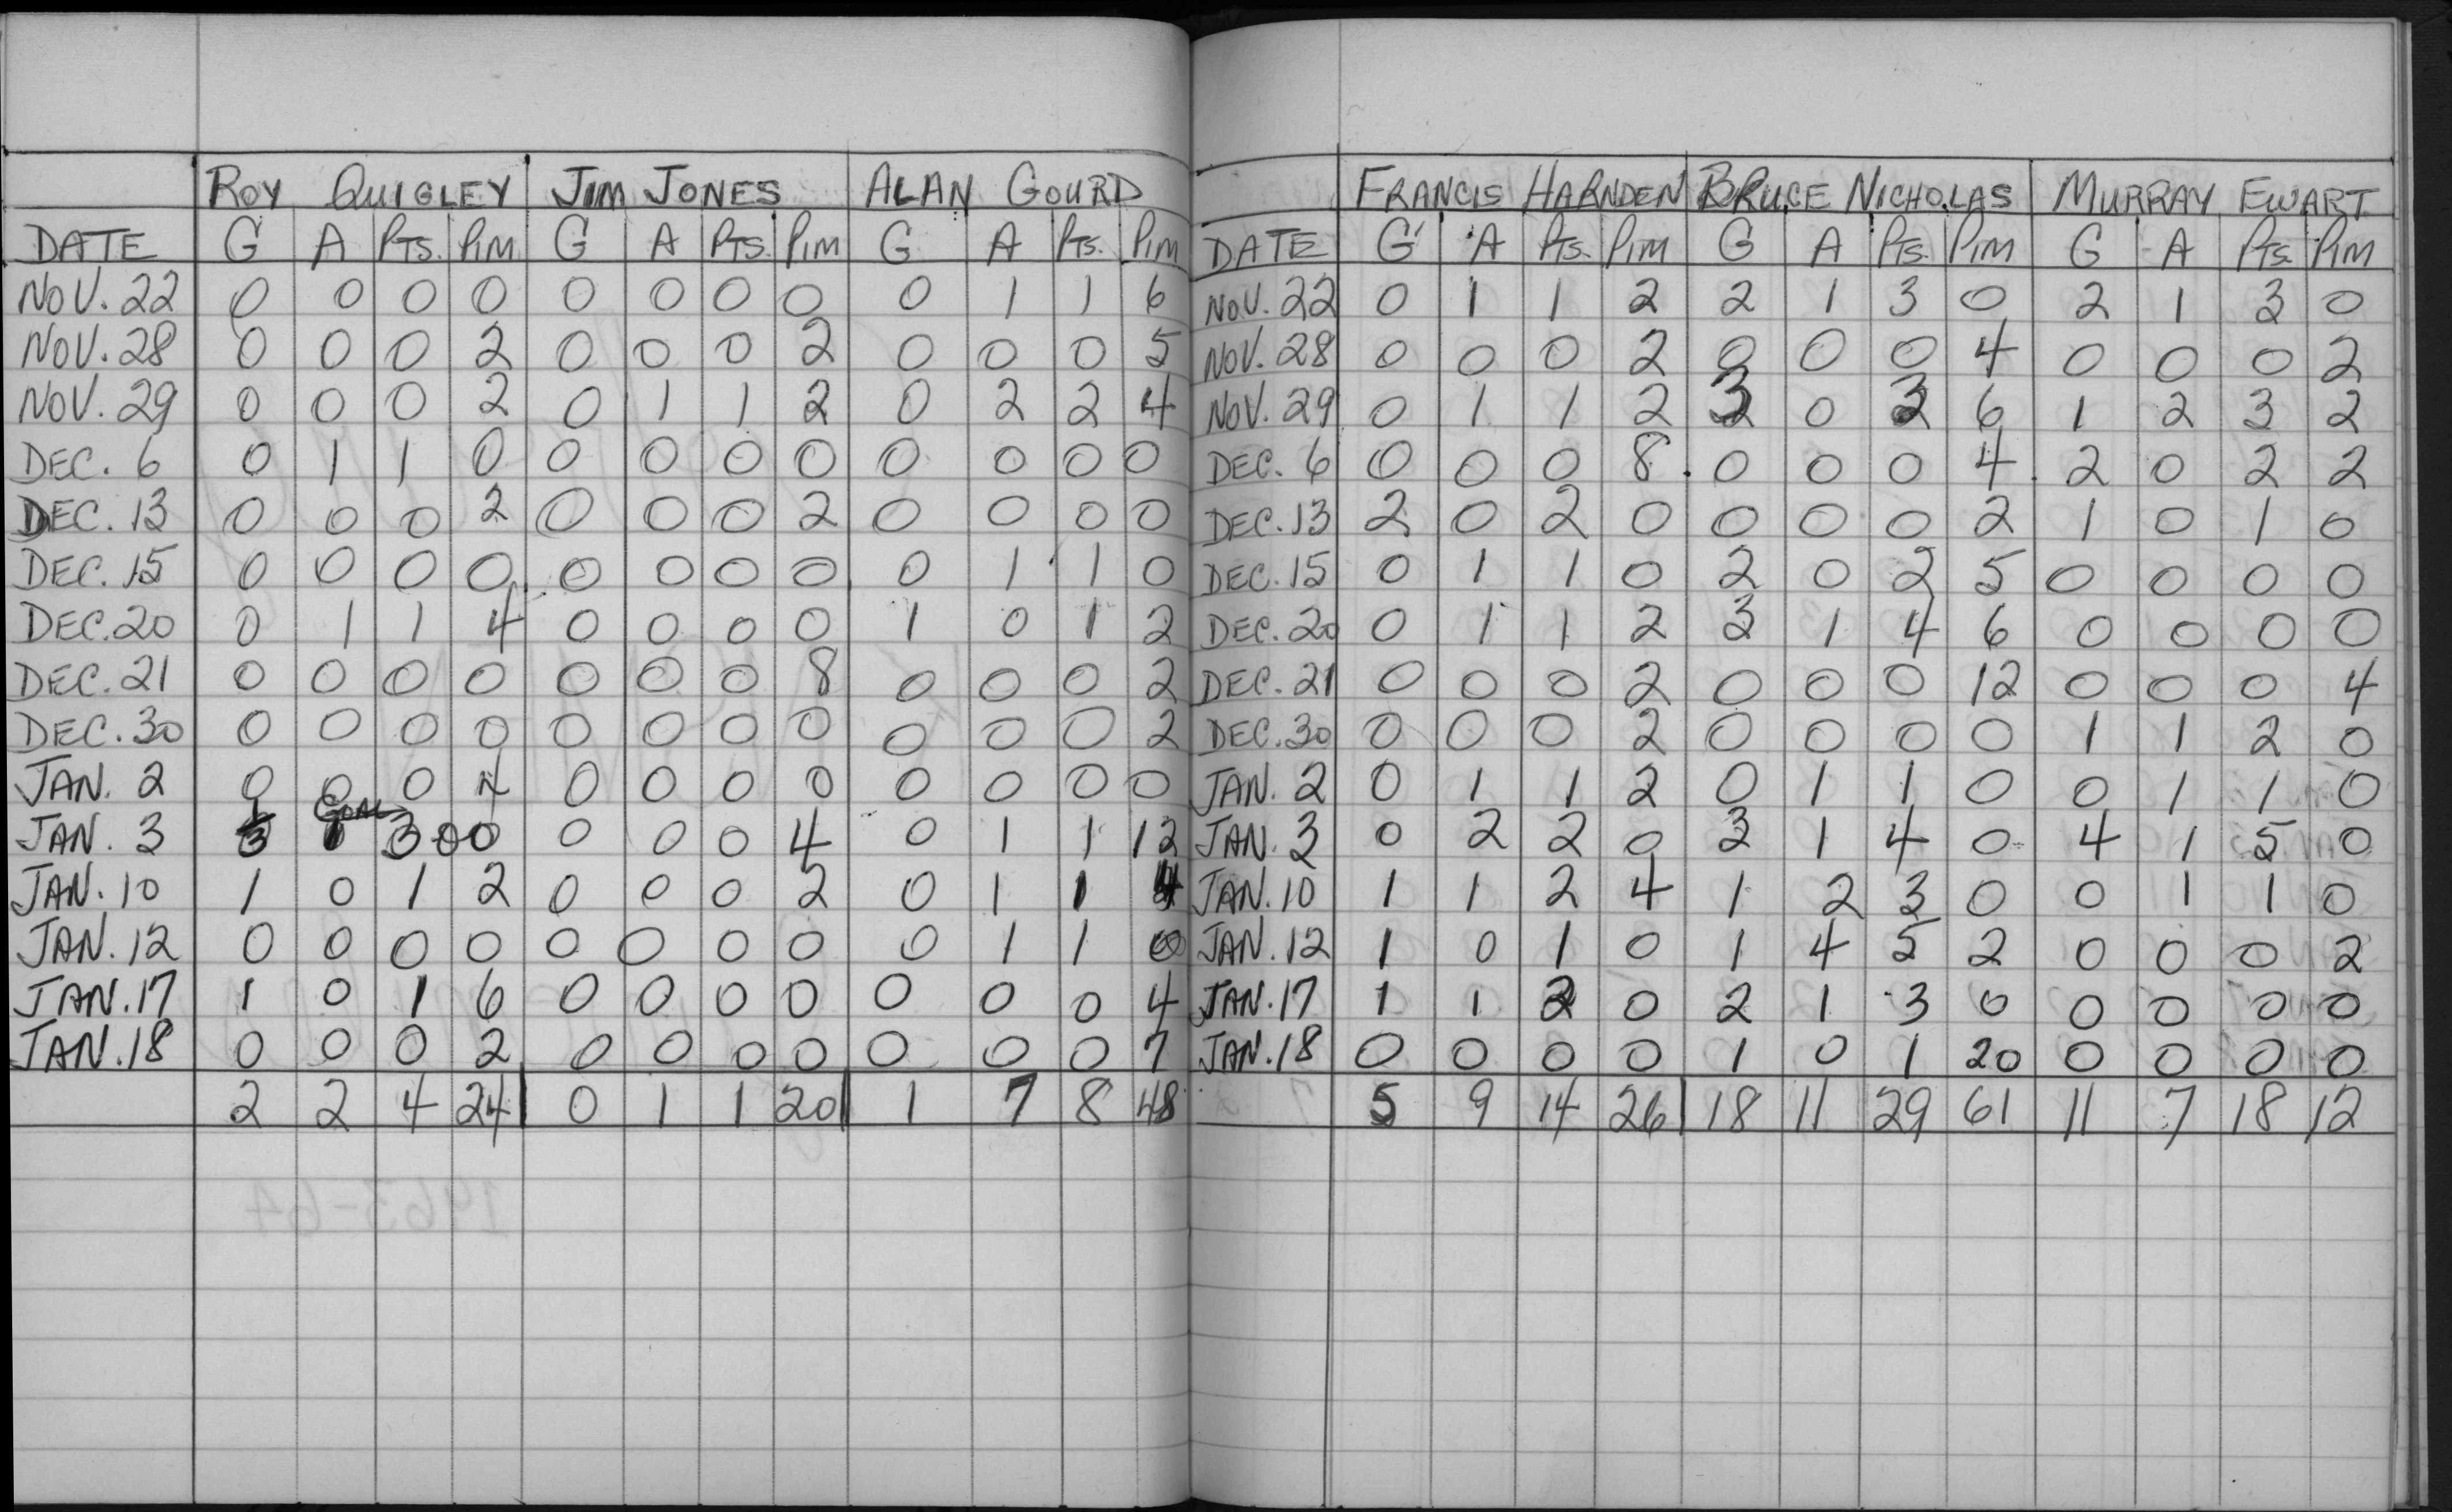 ROY QUIGLEY JIM JONES ALAN GOURD
DATE G A PTS. PIM G A PTS. PIM G A PTS. PIM
NOV. 22 0 0 0 0 0 0 0 0 0 1 1 6
NOV. 28 0 0 0 2 0 0 0 2 0 0 0 5
NOV. 29 0 0 0 2 0 1 1 2 0 2 2 4
DEC. 6 0 1 1 0 0 0 0 0 0 0 0 0
DEC. 13 0 0 0 2 0 0 0 2 0 0 0 0
DEC. 15 0 0 0 0 0 0 0 0 0 1 1 0
DEC. 20 0 1 1 4 0 0 0 0 1 0 1 2
DEC. 21 0 0 0 0 0 0 0 8 0 0 0 2
DEC. 30 0 0 0 0 0 0 0 0 0 0 0 2
JAN. 2 0 0 0 4 0 0 0 0 0 0 0 0
GOAL
JAN. 3 3 1 3.00 0 0 0 4 0 1 1 12
JAN. 10 1 0 1 2 0 0 0 2 0 1 1 4
JAN. 12 0 0 0 0 0 0 0 0 0 1 1 0
JAN. 17 1 0 1 6 0 0 0 0 0 0 0 4
JAN. 18 0 0 0 2 0 0 0 0 0 0 0 7
2 2 4 24 0 1 1 20 1 7 8 48
FRANCIS HARNDEN BRUCE NICHOLAS MURRAY EWART
DATE G A PTS. PIM G A PTS. PIM G A PTS. PIM
NOV. 22 0 1 1 2 2 1 3 0 2 1 3 0
NOV. 28 0 0 0 2 0 0 0 4 0 0 0 2
NOV. 29 0 1 1 2 3 0 3 6 1 2 3 2
DEC. 6 0 0 0 8 0 0 0 4 2 0 2 2
DEC. 13 2 0 2 0 0 0 0 2 1 0 1 0
DEC. 15 0 1 1 0 2 0 2 5 0 0 0 0
DEC. 20 0 1 1 2 3 1 4 6 0 0 0 0
DEC. 21 0 0 0 2 0 0 0 12 0 0 0 4
DEC. 30 0 0 0 2 0 0 0 0 1 1 2 0
JAN. 2 0 1 1 2 0 1 1 0 0 1 1 0
JAN. 3 0 2 2 0 3 1 4 0 4 1 5 0
JAN. 10 1 1 2 4 1 2 3 0 0 1 1 0
JAN. 12 1 0 1 0 1 4 5 2 0 0 0 2
JAN. 17 1 1 2 0 2 1 3 0 0 0 0 0
JAN. 18 0 0 0 0 1 0 1 20 0 0 0 0
5 9 14 26 18 11 29 61 11 7 18 12